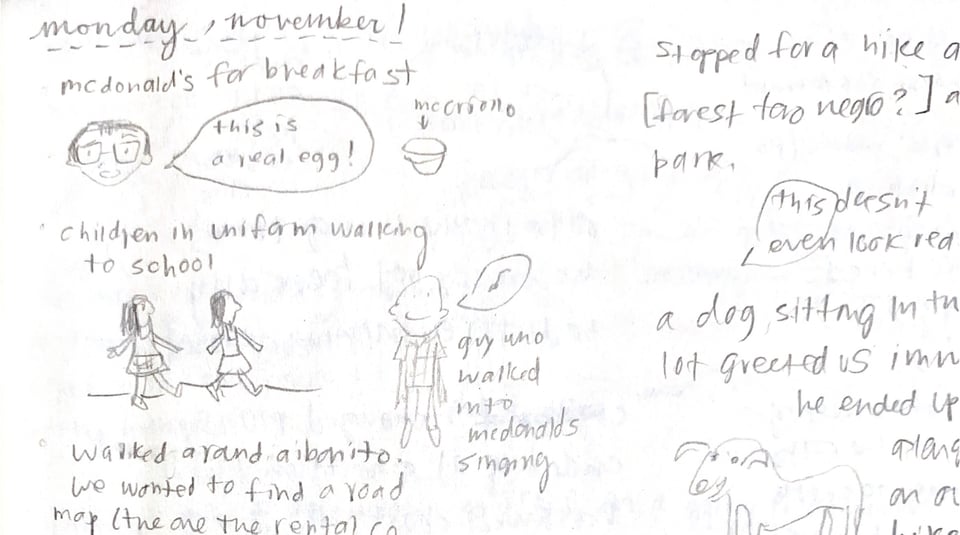 monday, november!
mcdonald's for breakfast
this is
a real egg!
mccriollo
children in uniform walking
to school
♪
guy who
walked
into
mcdonalds
singing
walked around aibonito.
we wanted to find a road
map (the one the rental co
stopped for a hike a
[forest toro negro?] a
park.
this doesn't
even look rea
a dog sitting in th
lot greeted us imm
he ended up
along
on ou